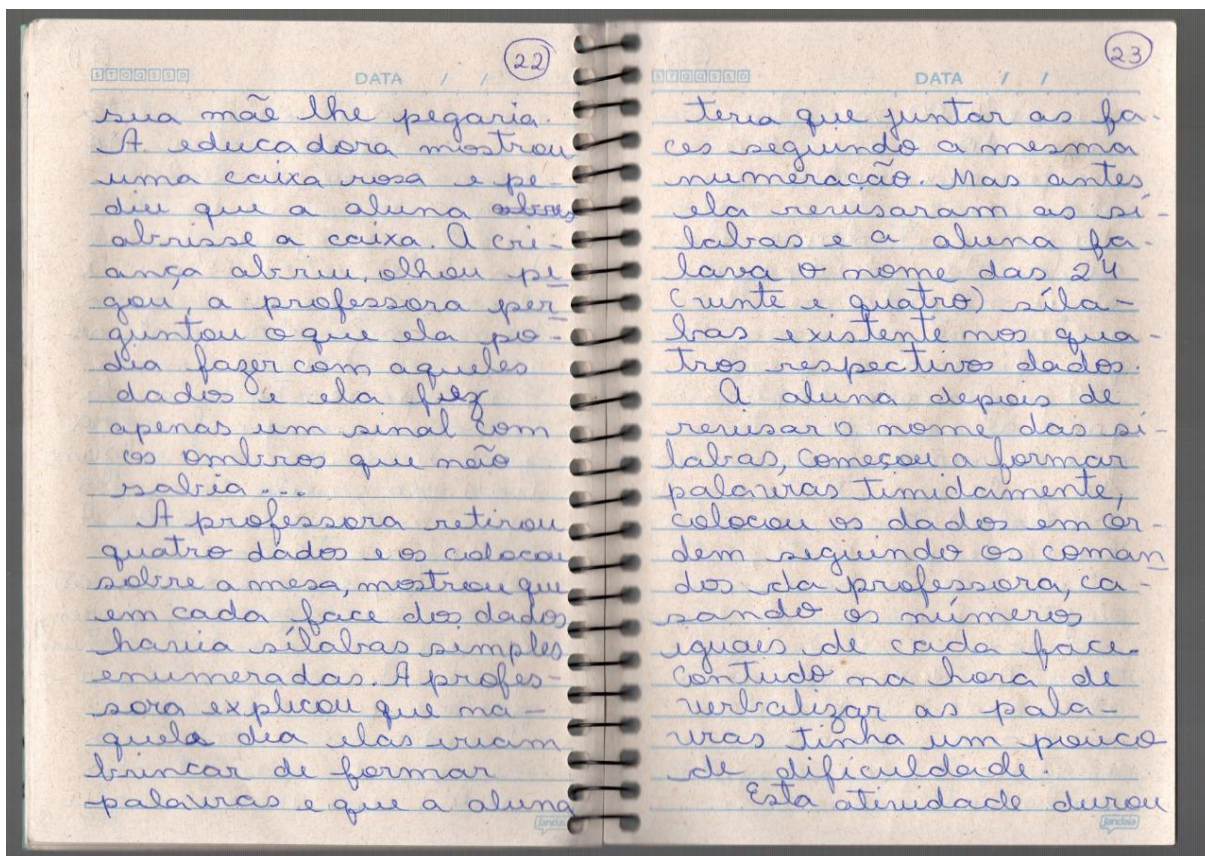 22
STQQSSD
DATA / /
sua mãe lhe pegaria.
A educadora mostrou
uma caixa rosa e pe-
diu que a aluna
abrisse a caixa. A cri-
ança abriu, olhou pe
gou, a professora per
guntou o que ela po-
dia fazer com aqueles
dados e ela fez
apenas um sinal com
os ombros que não
sabia...
A professora retirou
quatro dados e os colocou
sobre a mesa, mostrou que
em cada face dos dados
havia sílabas simples
enumeradas. A profes-
sora explicou que na-
quela dia elas iriam
brincar de formar
palavras e que a aluna
Jandaia
23
STQQSSD
DATA / /
teria que juntar as fa-
ces seguindo a mesma
numeração. Mas antes
ela revisaram as sí-
labas e a aluna fa-
lava o nome das 24
(vinte e quatro) síla-
bas existente nos qua-
tros respectivos dados.
A aluna depois de
revisar o nome das sí-
labas, começou a formar
palavras timidamente,
colocou os dados em or-
dem seguindo os coman
dos da professora, ca-
sando os números
iguais de cada face.
Contudo na hora de
verbalizar as pala-
vras tinha um pouco
de dificuldade.
Esta atividade durou
Jandaia